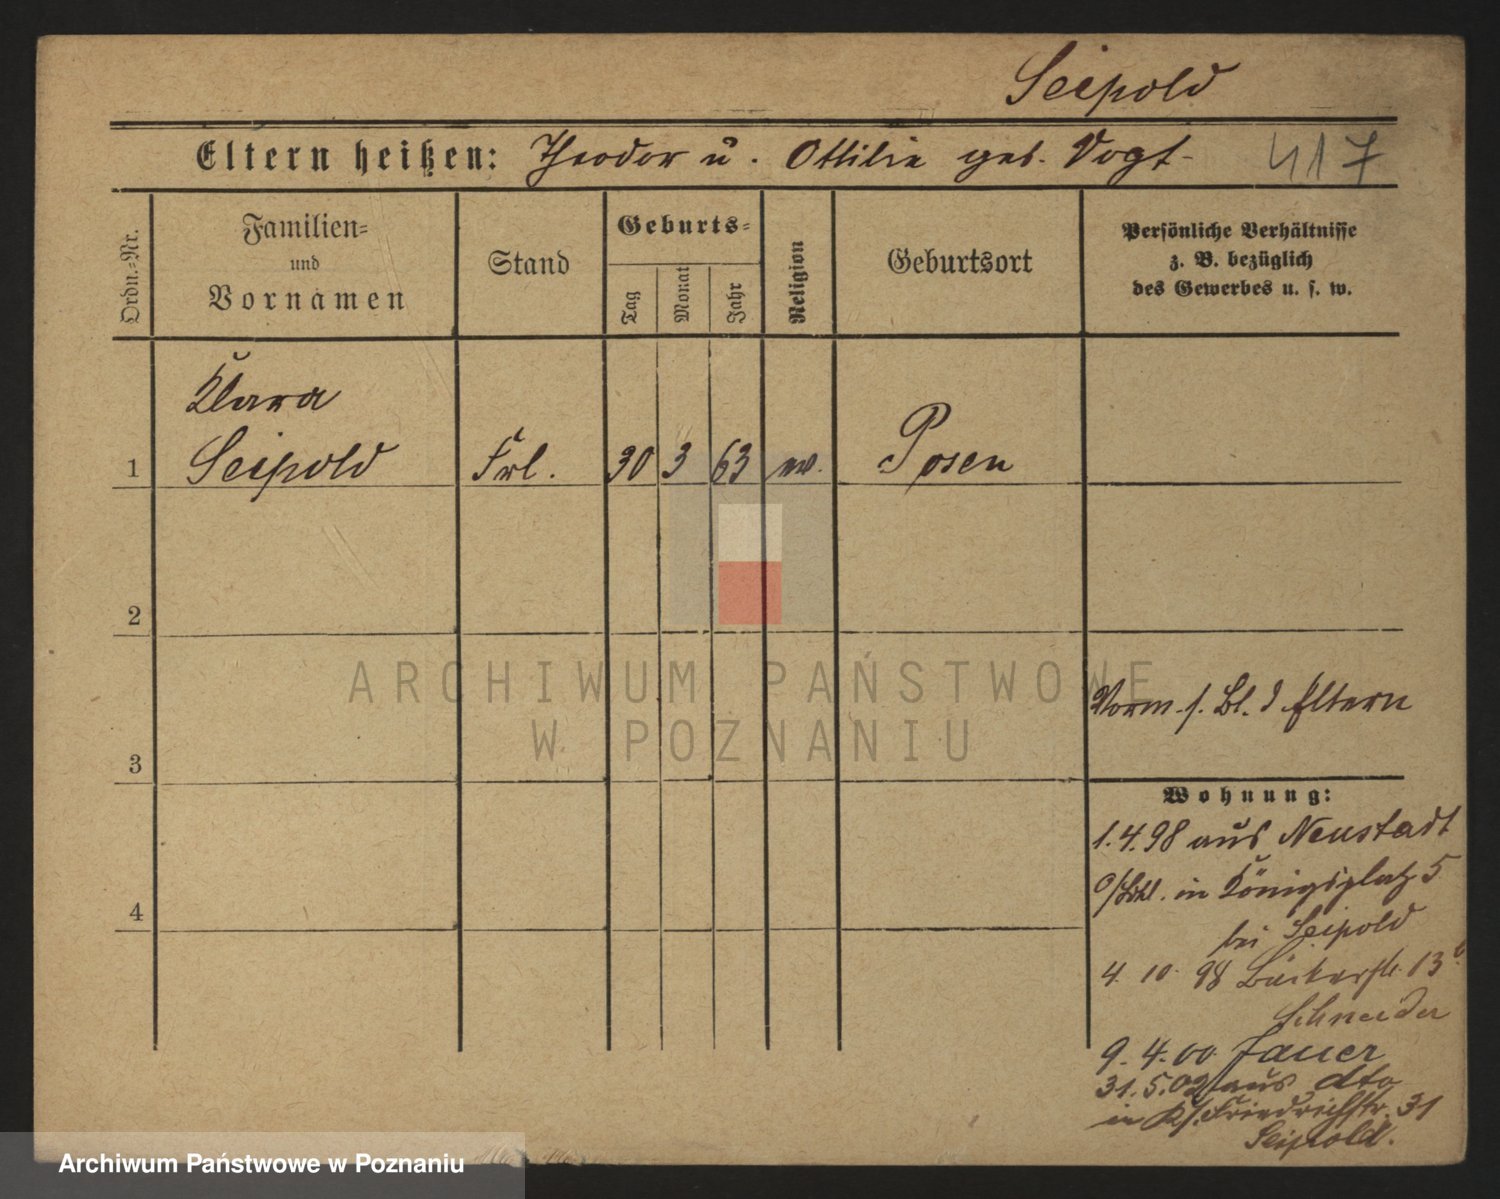 Seipold
Eltern heißen: Theodor u. Ottilie geb. Vogt
417
Ordn.-Nr.
Familien-
und
Vornamen
Stand
Geburts-
Tag
Monat
Jahr
Religion
Geburtsort
Persönliche Verhältnisse
z. B. bezüglich
des Gewerbes u. s. w.
Klara
1 Seipold Frl. 30 3 63 ev. Posen
2
ARCHIWUM PAŃSTWOWE
W POZNANIU
Vorm. s. Bl. d Eltern
3
Wohnung:
1.4.98 aus Neustadt
in Königsplatz 5
4
bei Seipold
4. 10. 98 Bäckerstr. 13
Schneider
9. 4. 00 Jauer
31. 5. 02 aus dto
in K/. Friedrichstr. 31
Seipold.
Archiwum Państwowe w Poznaniu